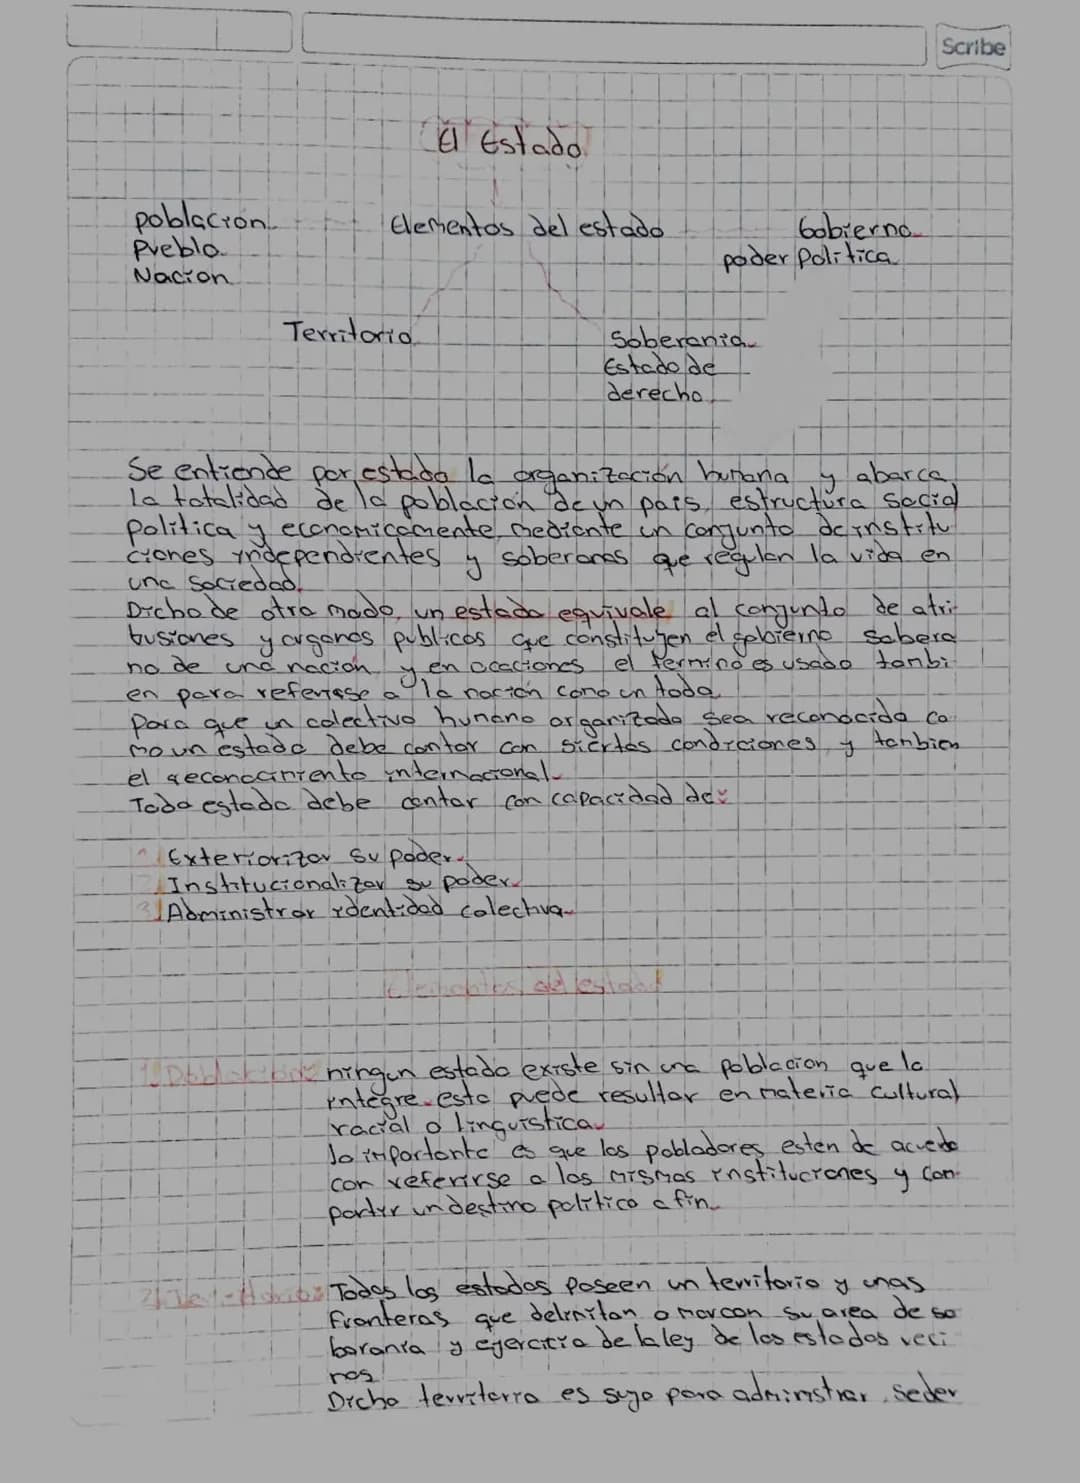 Scribe
El Estado
poblacion.
Pueblo.
Nacion
Elementos del estado
Gobierno.
poder Politica.
Territorio.
Soberania.
Estado de
derecho.
Se entiende por estado la organización humana y abarca
la totalidad de la población de un pais, estructura social
politica y economicamente, mediante un conjunto de institu
ciones independientes y soberanas que regulan la vida en
una sociedad.
Dicho de otro modo, un estado equivale al conjunto de atri-
busiones y organos publicos que constituyen el gobierno sobera
no de una nación, y en ocaciones el termino es usado tambi
en para referisse a la nación como un todo.
Para que un colectivo humano organizado sea reconocido co
mo un estado debe contar con siertas condiciones, y tambien
el reconocimiento internacional.
Todo estado debe contar con capacidad de:
1. Exteriorizar su poder.
2. Institucionalizar su poder.
3. Administrar identidad colectiva.
Elementos del estado
1. Poblacion: ningun estado existe sin una poblacion que la
integre. esta puede resultar en materia cultural
racial o linguistica.
lo importante es que los pobladores esten de acuedo
con referirse a las mismas instituciones y com-
partir un destino politico a fin.
2. Territorio: Todos los estados poseen un territorio y unas
fronteras que delimitan o marcan su area de so
borania y ejercitia de la ley de los estados veci
nos.
Dicho territorio es suyo para administrar, seder